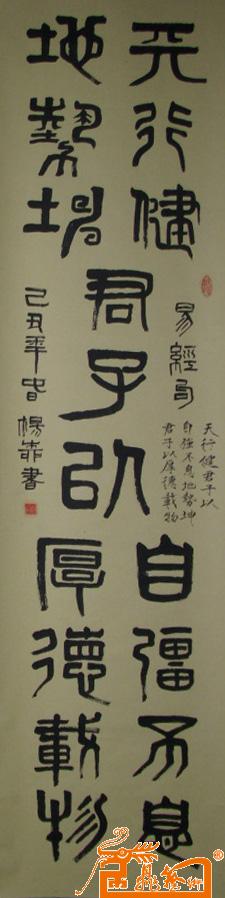 天行健
自彊不息
君子以
地勢坤
厚德載物
易經句
天行健君子以
自強不息地勢坤
君子以厚德載物
己丑年春楊
書